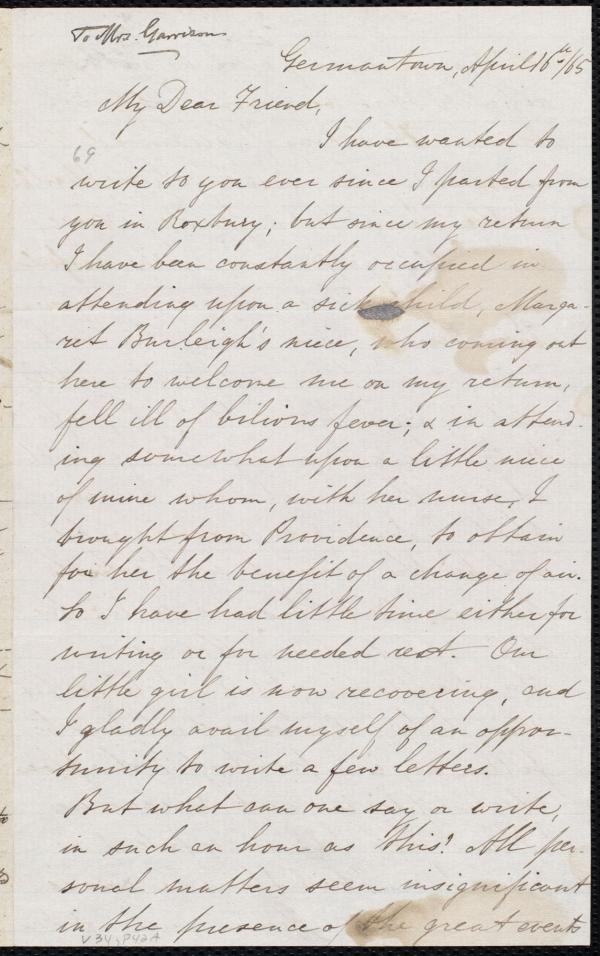 To Mrs. Garrison
Germantown, April 16th/65
My Dear Friend,
I have wanted to
69
write to you ever since I parted from
you in Roxbury; but since my return
I have been constantly occupied in
attending upon a sick child, Marga-
ret Burleigh's niece, who coming out
here to welcome me on my return,
fell ill of bilious fever; & in attend-
ing somewhat upon a little niece
of mine whom, with her nurse, I
brought from Providence, to obtain
for her the benefit of a change of air.
So I have had little time either for
writing or for needed rest. Our
little girl is now recovering, and
I gladly avail myself of an oppor-
tunity to write a few letters.
But what can one say or write,
in such an hour as this! All per-
sonal matters seem insignificant
in the presence of the great events
V34, P42A